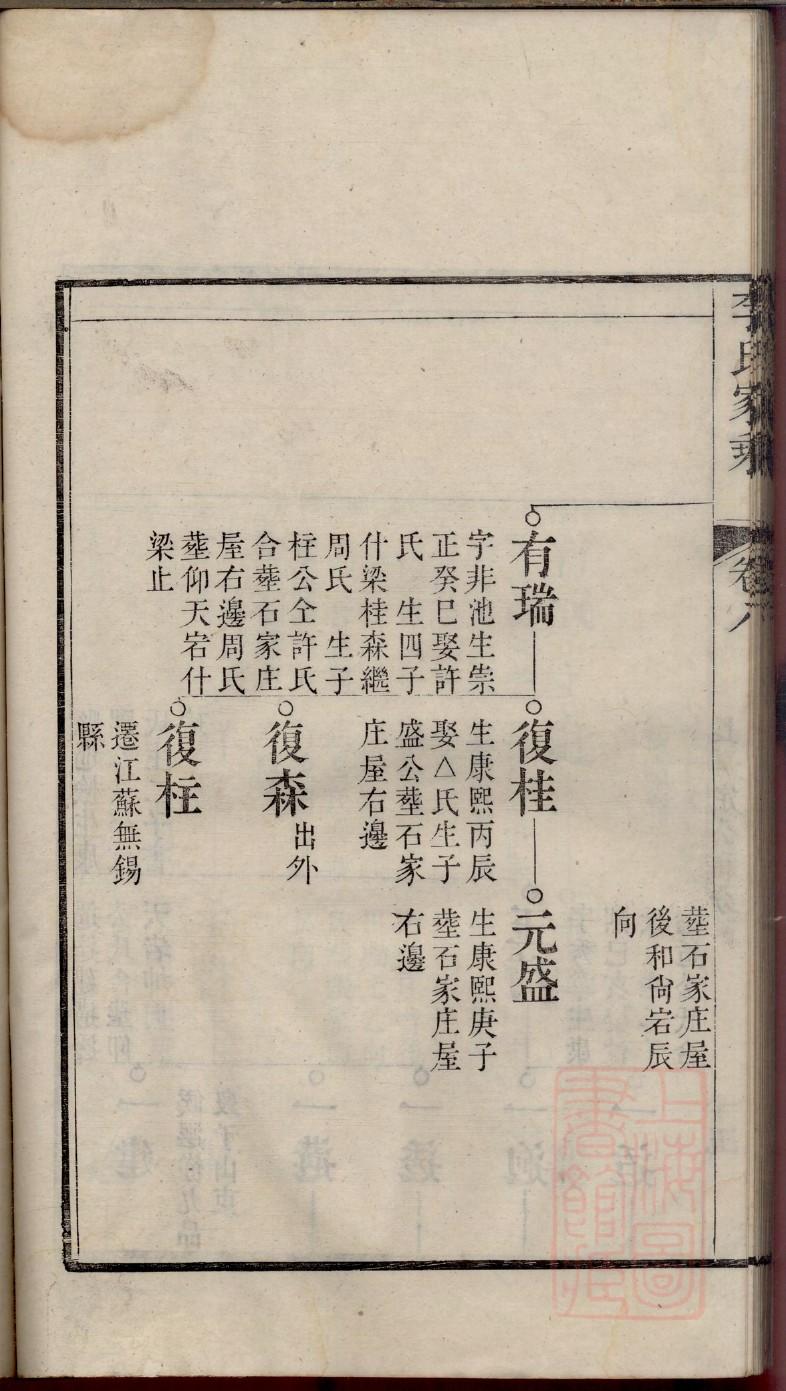 李氏家乘
卷六
塟石家庄屋
後和尙岩辰
向
有瑞
字非池生崇
正癸巳娶許
氏 生四子
什梁桂森繼
周氏 生子
柱公仝許氏
合塟石家庄
屋右邊周氏
塟仰天宕什
梁止
復桂
生康熙丙辰
娶△氏生子
盛公塟石家
庄屋右邊
元盛
生康熙庚子
塟石家庄屋
右邊
復森
出外
復柱
遷江蘇無錫
縣
上海圖
書館藏